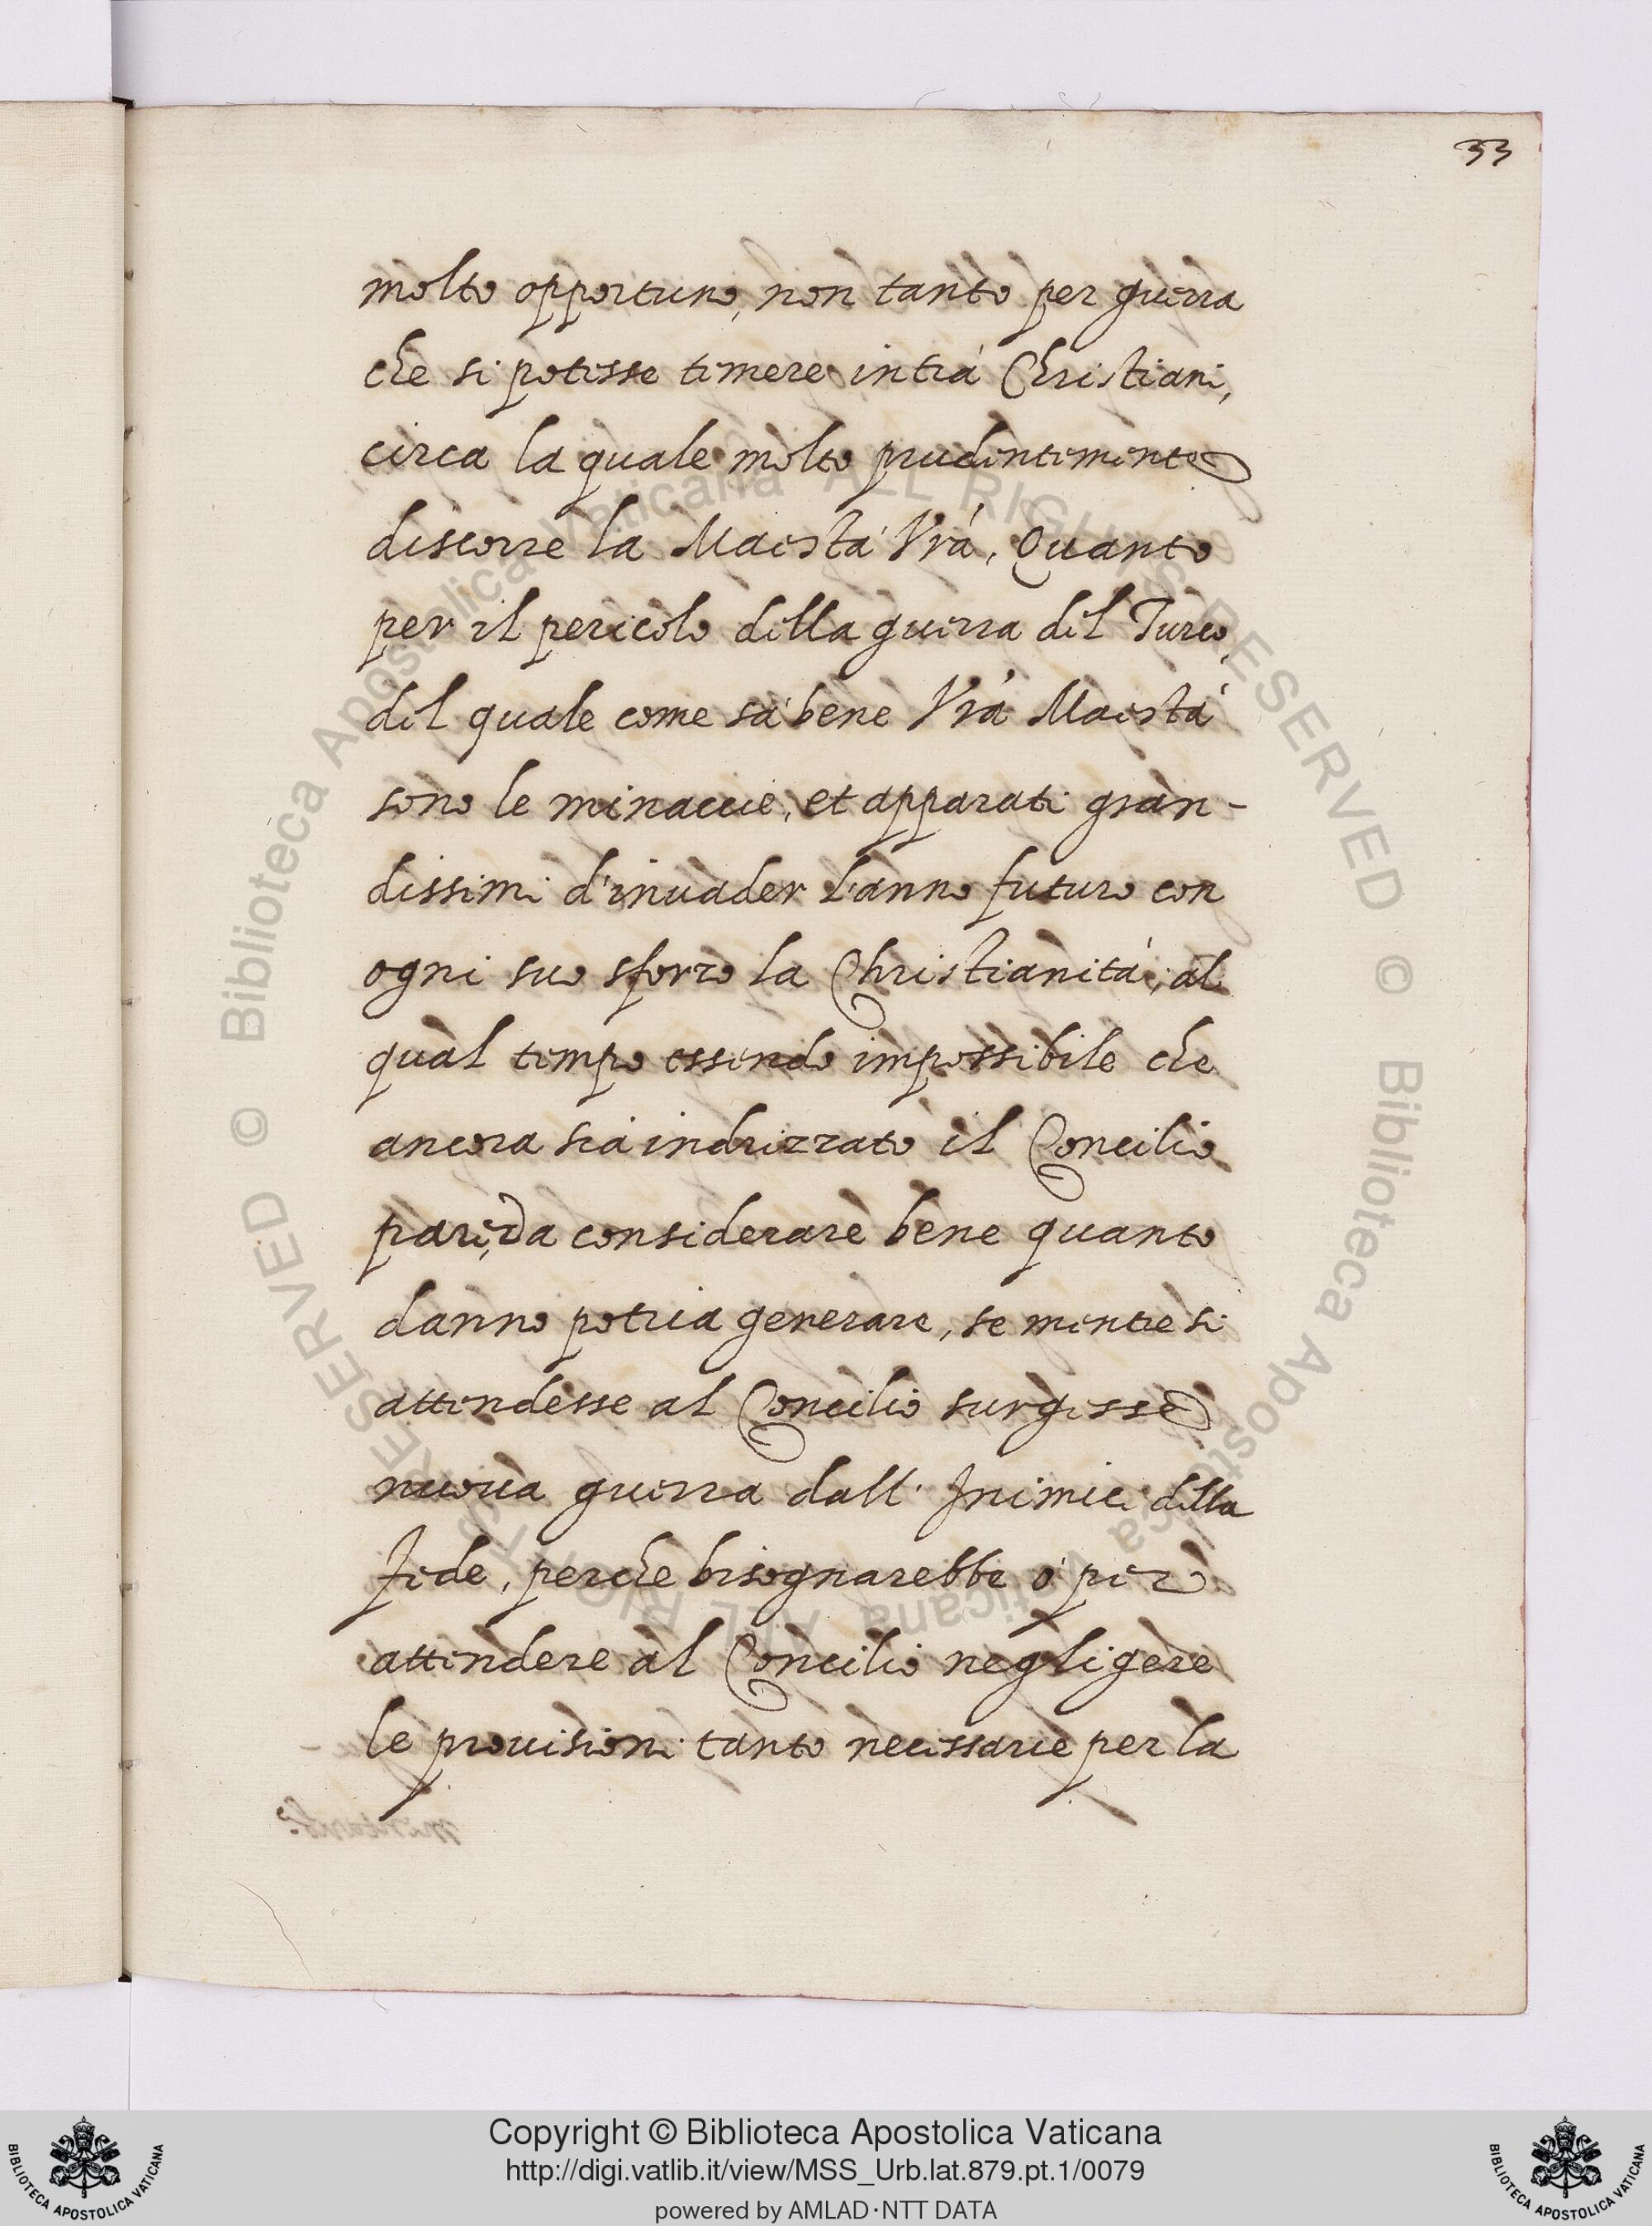 33
molto opportuno, non tanto per guerra
che si potesse temere intrà Christiani,
circa la quale molto prudentemente
discorre la Maestà Vrà, Quanto
per il pericolo della guerra del Turco,
del quale come sà bene Vrà Maestà
sono le minaccie, et apparati gran-
dissimi d'inuader l'anno futuro con
ogni suo sforzo la Christianità, al
qual tempo essendo impossibile che
ancora sia indrizzato il Concilio
pare, da considerare bene quanto
danno potria generare, se mentre si
attendesse al Concilio surgesse
nuoua guerra dall' Inimici della
fede, perche bisognarebbe ò per
attendere al Concilio negligere
le prouisioni tanto necessarie per la
© Biblioteca Apostolica Vaticana ALL RIGHTS RESERVED © Biblioteca Apostolica Vaticana ALL RIGHTS RESERVED
Copyright © Biblioteca Apostolica Vaticana
http://digi.vatlib.it/view/MSS_Urb.lat.879.pt.1/0079
powered by AMLAD·NTT DATA
BIBLIOTECA APOSTOLICA VATICANA
BIBLIOTECA APOSTOLICA VATICANA